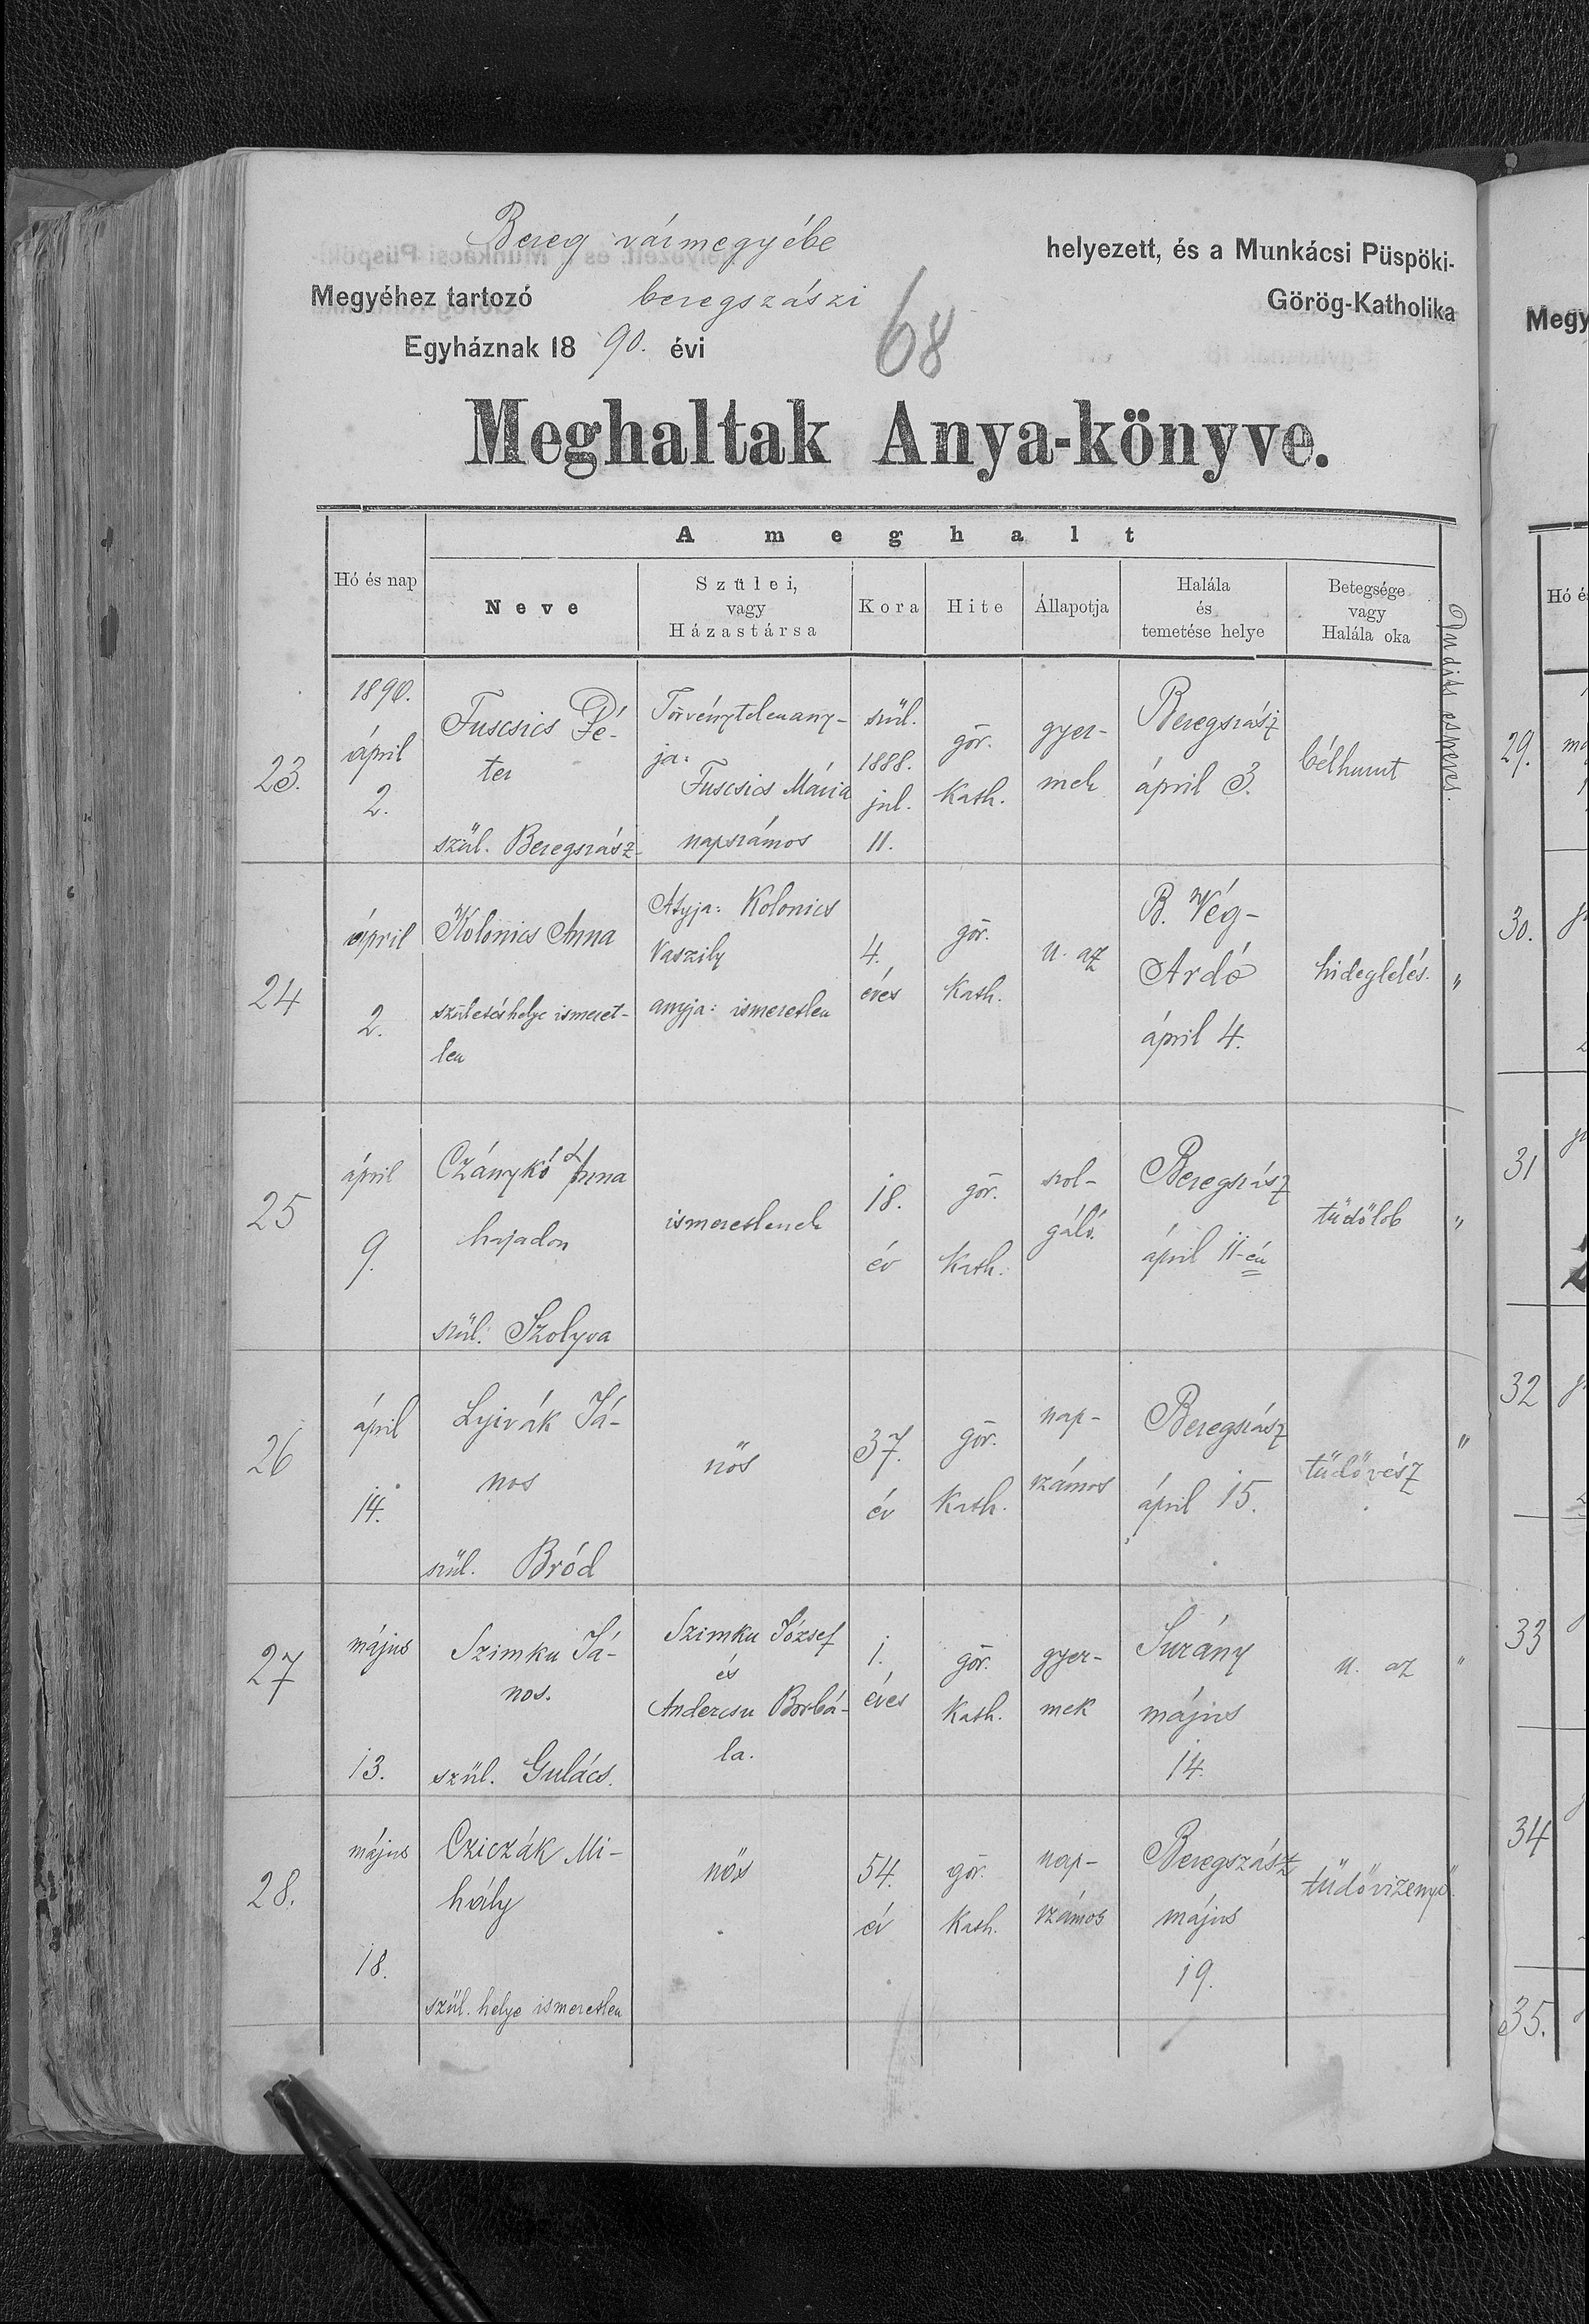 Bereg vármegyébe helyezett, és a Munkácsi Püspöki-
Megyéhez tartozó beregszászi Görög-Katholika
Egyháznak 18 90. évi
68
Meghaltak Anya-könyve.
A meghalt
Hó és nap
Neve
Szülei,
vagy
Házastársa
Kora
Hite
Állapotja
Halála
és
temetése helye
Betegsége
vagy
Halála oka
esperes.
23.
1890.
ápril
2.
Fuscsics Pé-
ter
szül. Beregszász
Törvénytelen any-
ja:
Fuscsics Mária
napszámos
szül.
1888.
jul.
11.
gör.
Kath.
gyer-
mek
Beregszász
ápril 3.
bélhurut
24
ápril
2.
Kolonics Anna
születéshelye ismeret-
len
Atyja: Kolonics
Vaszily
anyja: ismeretlen
4.
éves
gör.
Kath.
u. az
B. Vég-
Ardó
ápril 4.
hideglelés.
"
25
ápril
9.
Czánykó Anna
hajadon
szül. Szolyva
ismeretlenek
18.
év
gör.
Kath.
szol-
gáló.
Beregszász
ápril 11-én
tüdőlob
"
26
ápril
14.
Lyivák Já-
nos
szül. Bród
nős
37.
év
gör.
Kath.
nap-
számos
Beregszász
ápril 15.
tüdővész
"
27
május
13.
Szimku Já-
nos.
szül. Gulács.
Szimku József
és
Andercsu Borbá-
la.
1.
éves
gör.
Kath.
gyer-
mek
Surány
május
14.
u. az
"
28.
május
18.
Cziczák Mi-
hály
szül. helye ismeretlen
nős
54.
év
gör.
Kath.
nap-
számos
Beregszász
május
19.
tüdővizenyő.
Megy
Hó és
29.
30.
31
32
33
34
35.